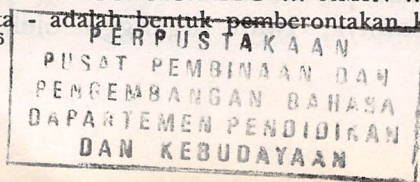 ta - adalah bentuk pemberontakan
PERPUSTAKAAN
PUSAT PEMBINAAN DAN
PENGEMBANGAN BAHASA
DAPARTEMEN PENDIDIKAN
DAN KEBUDAYAAN